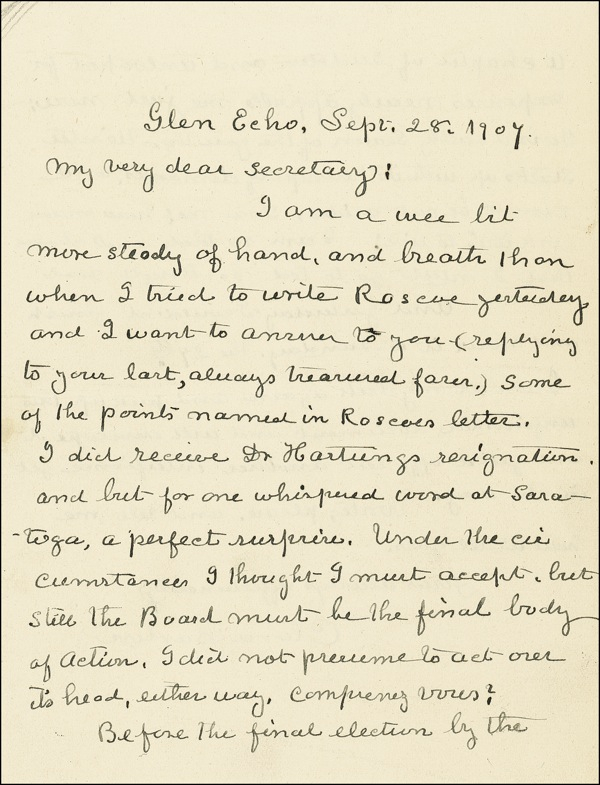 Glen Echo, Sept. 28. 1907.
My very dear Secretary;
I am a wee bit
more steady of hand, and breath than
when I tried to write Roscoe yesterday
and I want to answer to you (replying
to your last, always treasured favor,) some
of the points named in Roscoes letter.
I did receive Dr Hartungs resignation.
and but for one whispered word at Sara-
-toga, a perfect surprise. Under the cir
cumstances I thought I must accept. but
still the Board must be the final body
of Action. I did not presume to act over
its head, either way. Comprenez vous?
Before the final election by the